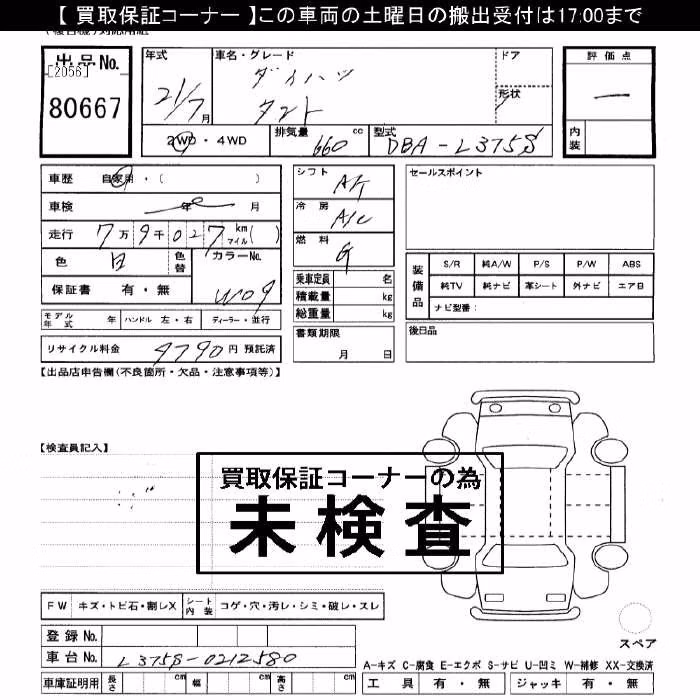 【 買取保証コーナー 】この車両の土曜日の搬出受付は17:00まで
出品No.
[2056]
80667
年式
21/7月
車名・グレード
ダイハツ
タント
ドア
形状
評価点
内装
2WD・4WD
排気量 660 cc
型式 DBA-L375S
車歴 自家用・( )
車検 年 月
走行 7万9千027 km マイル( )
色 白 色替 カラーNo. W09
保証書 有・無
モデル年式 年 ハンドル 左・右 ディーラー・並行
リサイクル料金 9790円 預託済
シフト A/T
冷房 A/C
燃料 G
乗車定員 名
積載量 kg
総重量 kg
書類期限
月 日
セールスポイント
装備品
S/R 純A/W P/S P/W ABS
純TV 純ナビ 革シート 外ナビ エアB
ナビ型番:
後日品
【出品店申告欄(不良箇所・欠品・注意事項等)】
【検査員記入】
買取保証コーナーの為
未検査
FW キズ・トビ石・割レX シート内装 コゲ・穴・汚レ・シミ・破レ・スレ
登録No.
車台No. L375S-0212580
車庫証明用 長さ cm 幅 cm 高さ cm
スペア
A-キズ C-腐食 E-エクボ S-サビ U-凹ミ W-補修 XX-交換済
工具 有・無 ジャッキ 有・無